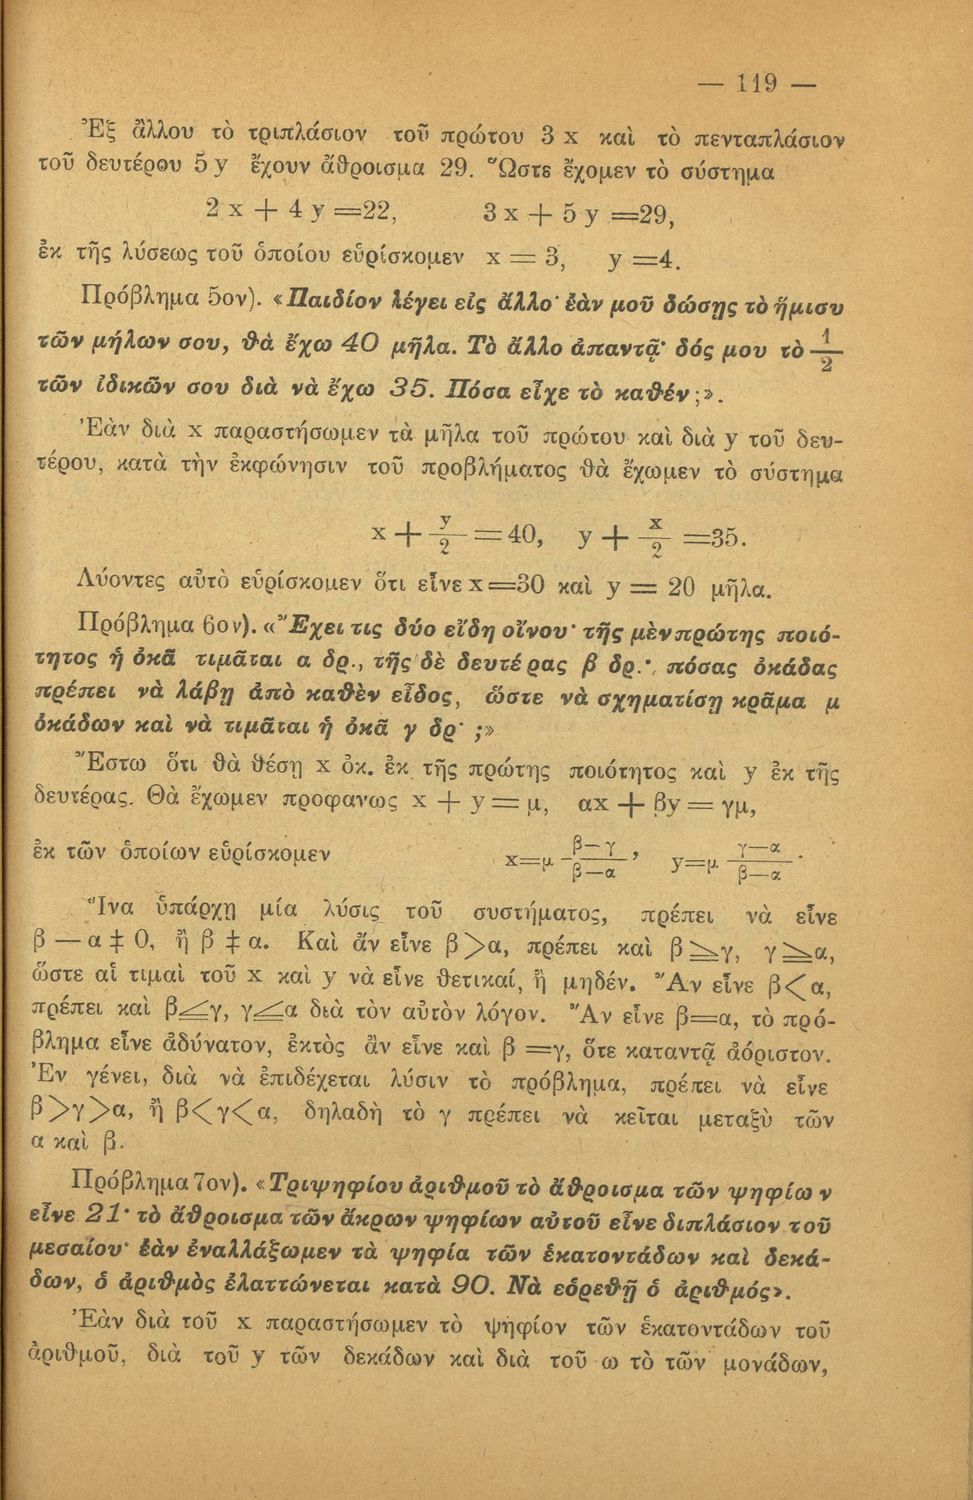 — 119 —
Ἐξ ἄλλου τὸ τριπλάσιον τοῦ πρώτου 3 x καὶ τὸ πενταπλάσιον
τοῦ δευτέρου 5 y ἔχουν ἄθροισμα 29. Ὥστε ἔχομεν τὸ σύστημα
2 x + 4 y =22, 3 x + 5 y =29,
ἐκ τῆς λύσεως τοῦ ὁποίου εὑρίσκομεν x = 3, y =4.
Πρόβλημα 5ον). «Παιδίον λέγει εἰς ἄλλο· ἐὰν μοῦ δώσῃς τὸ ἥμισυ
τῶν μήλων σου, θὰ ἔχω 40 μῆλα. Τὸ ἄλλο ἀπαντᾷ· δός μου τὸ 1/2
τῶν ἰδικῶν σου διὰ νὰ ἔχω 35. Πόσα εἶχε τὸ καθέν;».
Ἐὰν διὰ x παραστήσωμεν τὰ μῆλα τοῦ πρώτου καὶ διὰ y τοῦ δευ-
τέρου, κατὰ τὴν ἐκφώνησιν τοῦ προβλήματος θὰ ἔχωμεν τὸ σύστημα
x + y/2 = 40, y + x/2 =35.
Λύοντες αὐτὸ εὑρίσκομεν ὅτι εἶνε x=30 καὶ y = 20 μῆλα.
Πρόβλημα 6ον). «Ἔχει τις δύο εἴδη οἴνου· τῆς μὲν πρώτης ποιό-
τητος ἡ ὀκᾶ τιμᾶται α δρ., τῆς δὲ δευτέρας β δρ.·, πόσας ὀκάδας
πρέπει νὰ λάβῃ ἀπὸ καθὲν εἶδος, ὥστε νὰ σχηματίσῃ κρᾶμα μ
ὀκάδων καὶ νὰ τιμᾶται ἡ ὀκᾶ γ δρ· ;»
Ἔστω ὅτι θὰ θέσῃ x ὀκ. ἐκ τῆς πρώτης ποιότητος καὶ y ἐκ τῆς
δευτέρας. Θὰ ἔχωμεν προφανως x + y = μ, αx + βy = γμ,
ἐκ τῶν ὁποίων εὑρίσκομεν x=μ (β—γ)/(β—α), y=μ (γ—α)/(β—α).
Ἵνα ὑπάρχῃ μία λύσις τοῦ συστήματος, πρέπει νὰ εἶνε
β — α ‡ 0, ἢ β ‡ α. Καὶ ἄν εἶνε β>α, πρέπει καὶ β≧γ, γ≧α,
ὥστε αἱ τιμαὶ τοῦ x καὶ y νὰ εἶνε θετικαί, ἢ μηδέν. Ἂν εἶνε β<α,
πρέπει καὶ β≦γ, γ≦α διὰ τὸν αὐτὸν λόγον. Ἂν εἶνε β=α, τὸ πρό-
βλημα εἶνε ἀδύνατον, ἐκτὸς ἂν εἶνε καὶ β =γ, ὅτε καταντᾷ ἀόριστον.
Ἐν γένει, διὰ νὰ ἐπιδέχεται λύσιν τὸ πρόβλημα, πρέπει νὰ εἶνε
β>γ>α, ἢ β<γ<α, δηλαδὴ τὸ γ πρέπει νὰ κεῖται μεταξὺ τῶν
α καὶ β.
Πρόβλημα 7ον). «Τριψηφίου ἀριθμοῦ τὸ ἄθροισμα τῶν ψηφίω ν
εἶνε 21· τὸ ἄθροισμα τῶν ἄκρων ψηφίων αὐτοῦ εἶνε διπλάσιον τοῦ
μεσαίου· ἐὰν ἐναλλάξωμεν τὰ ψηφία τῶν ἑκατοντάδων καὶ δεκά-
δων, ὁ ἀριθμὸς ἐλαττώνεται κατὰ 90. Νὰ εὑρεθῇ ὁ ἀριθμός».
Ἐὰν διὰ τοῦ x παραστήσωμεν τὸ ψηφίον τῶν ἑκατοντάδων τοῦ
ἀριθμοῦ, διὰ τοῦ y τῶν δεκάδων καὶ διὰ τοῦ ω τὸ τῶν μονάδων,